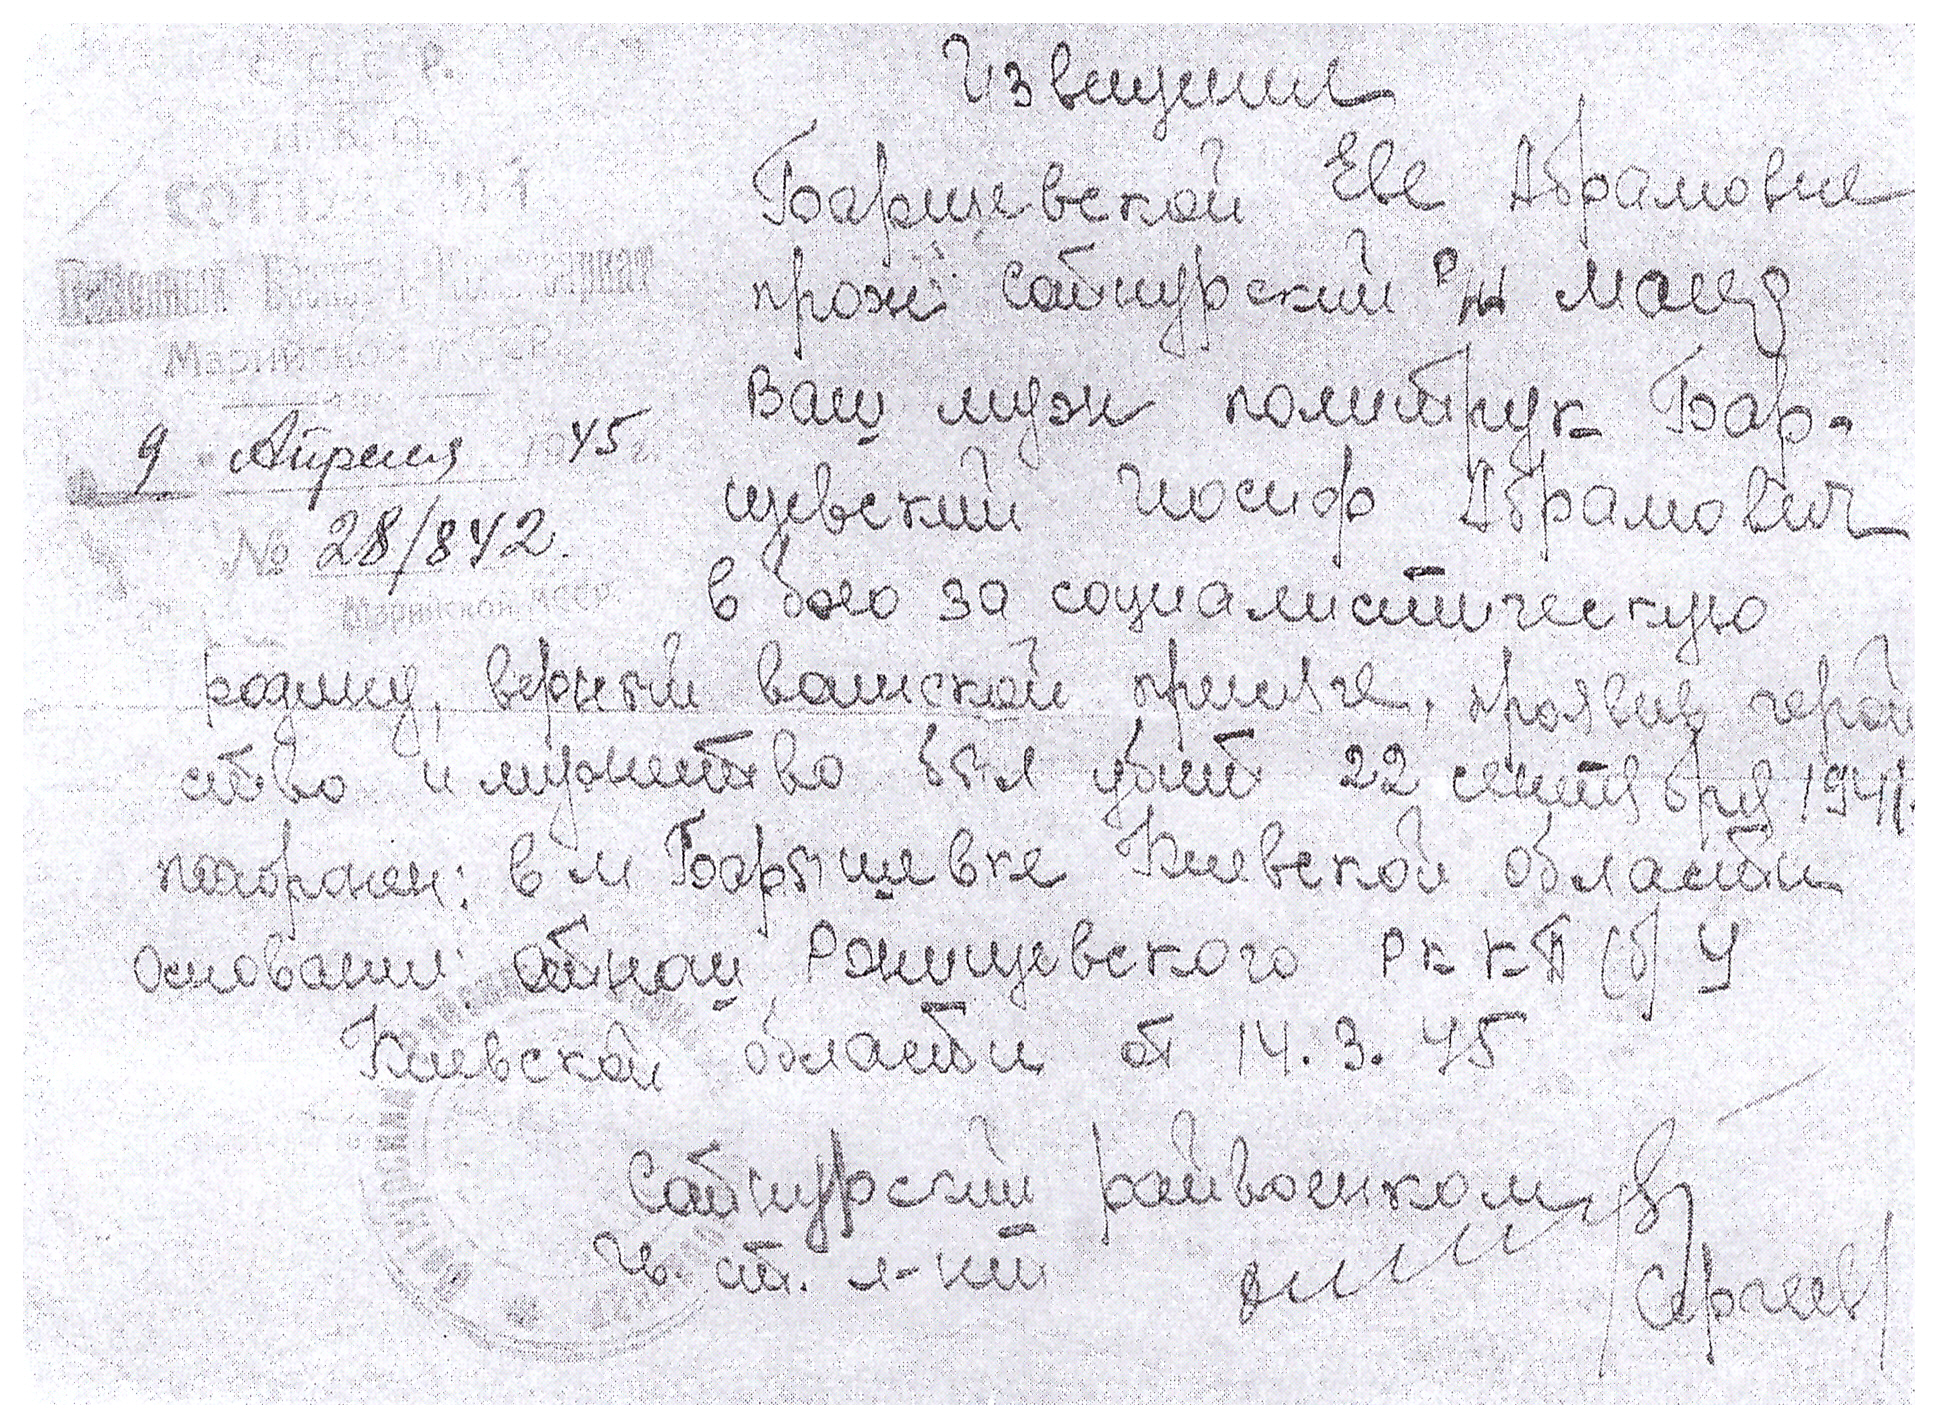 С.С.С.Р.
Н.К.О.
Районный Военный Комиссариат
Марийской АССР
9 Апреля 1945 г.
№ 28/842.
Марийской АССР
Извещение
Барщевской Еве Абрамовне
прож: Сотнурский р/н МАССР
Ваш муж политрук Бар-
щевский Иосиф Абрамович
в бою за социалистическую
родину, верный воинской присяге, проявив герой
ство и мужество был убит 22 сентября 1941.
похоронен: в м Барышевке Киевской области
Основание: отнош Ржищевского РК КП(б)У
Киевской области от 14.3.45
Сотнурский райвоенком
Гв. ст. л-нт
/Сергеев/